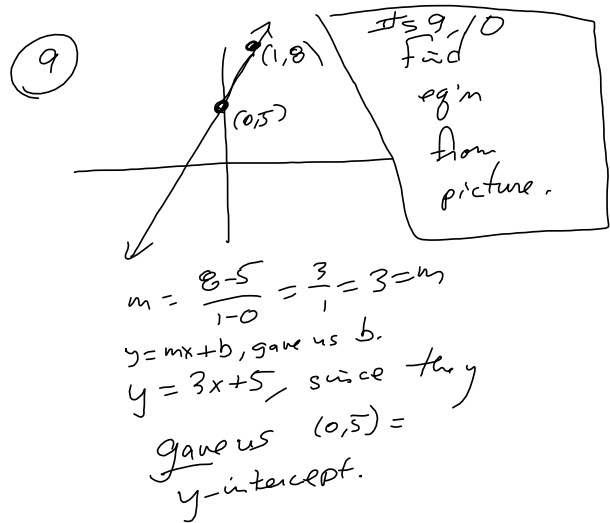 9
(1,8)
(0,5)
#s 9, 10
find
eq'n
from
picture.
m = 8-5/1-0 = 3/1 = 3 = m
y=mx+b, gave us b.
y = 3x+5, since they
gave us (0,5) =
y-intercept.